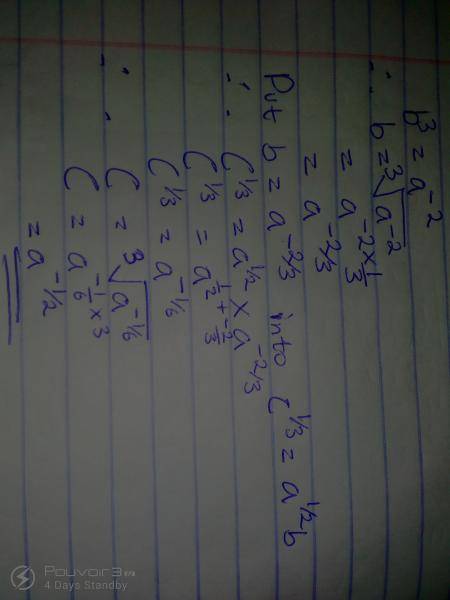 b³ = a⁻²
∴ b = ³√a⁻²
= a^(-2 × 1/3)
= a^(-2/3)
Put b = a^(-2/3) into C^(1/3) = a^(1/2) b
∴ C^(1/3) = a^(1/2) × a^(-2/3)
C^(1/3) = a^(1/2 + -2/3)
C^(1/3) = a^(-1/6)
C = ³√a^(-1/6)
∴ C = a^(-1/6 × 3)
= a^(-1/2)
Pouvoir 3 Air
4 Days Standby